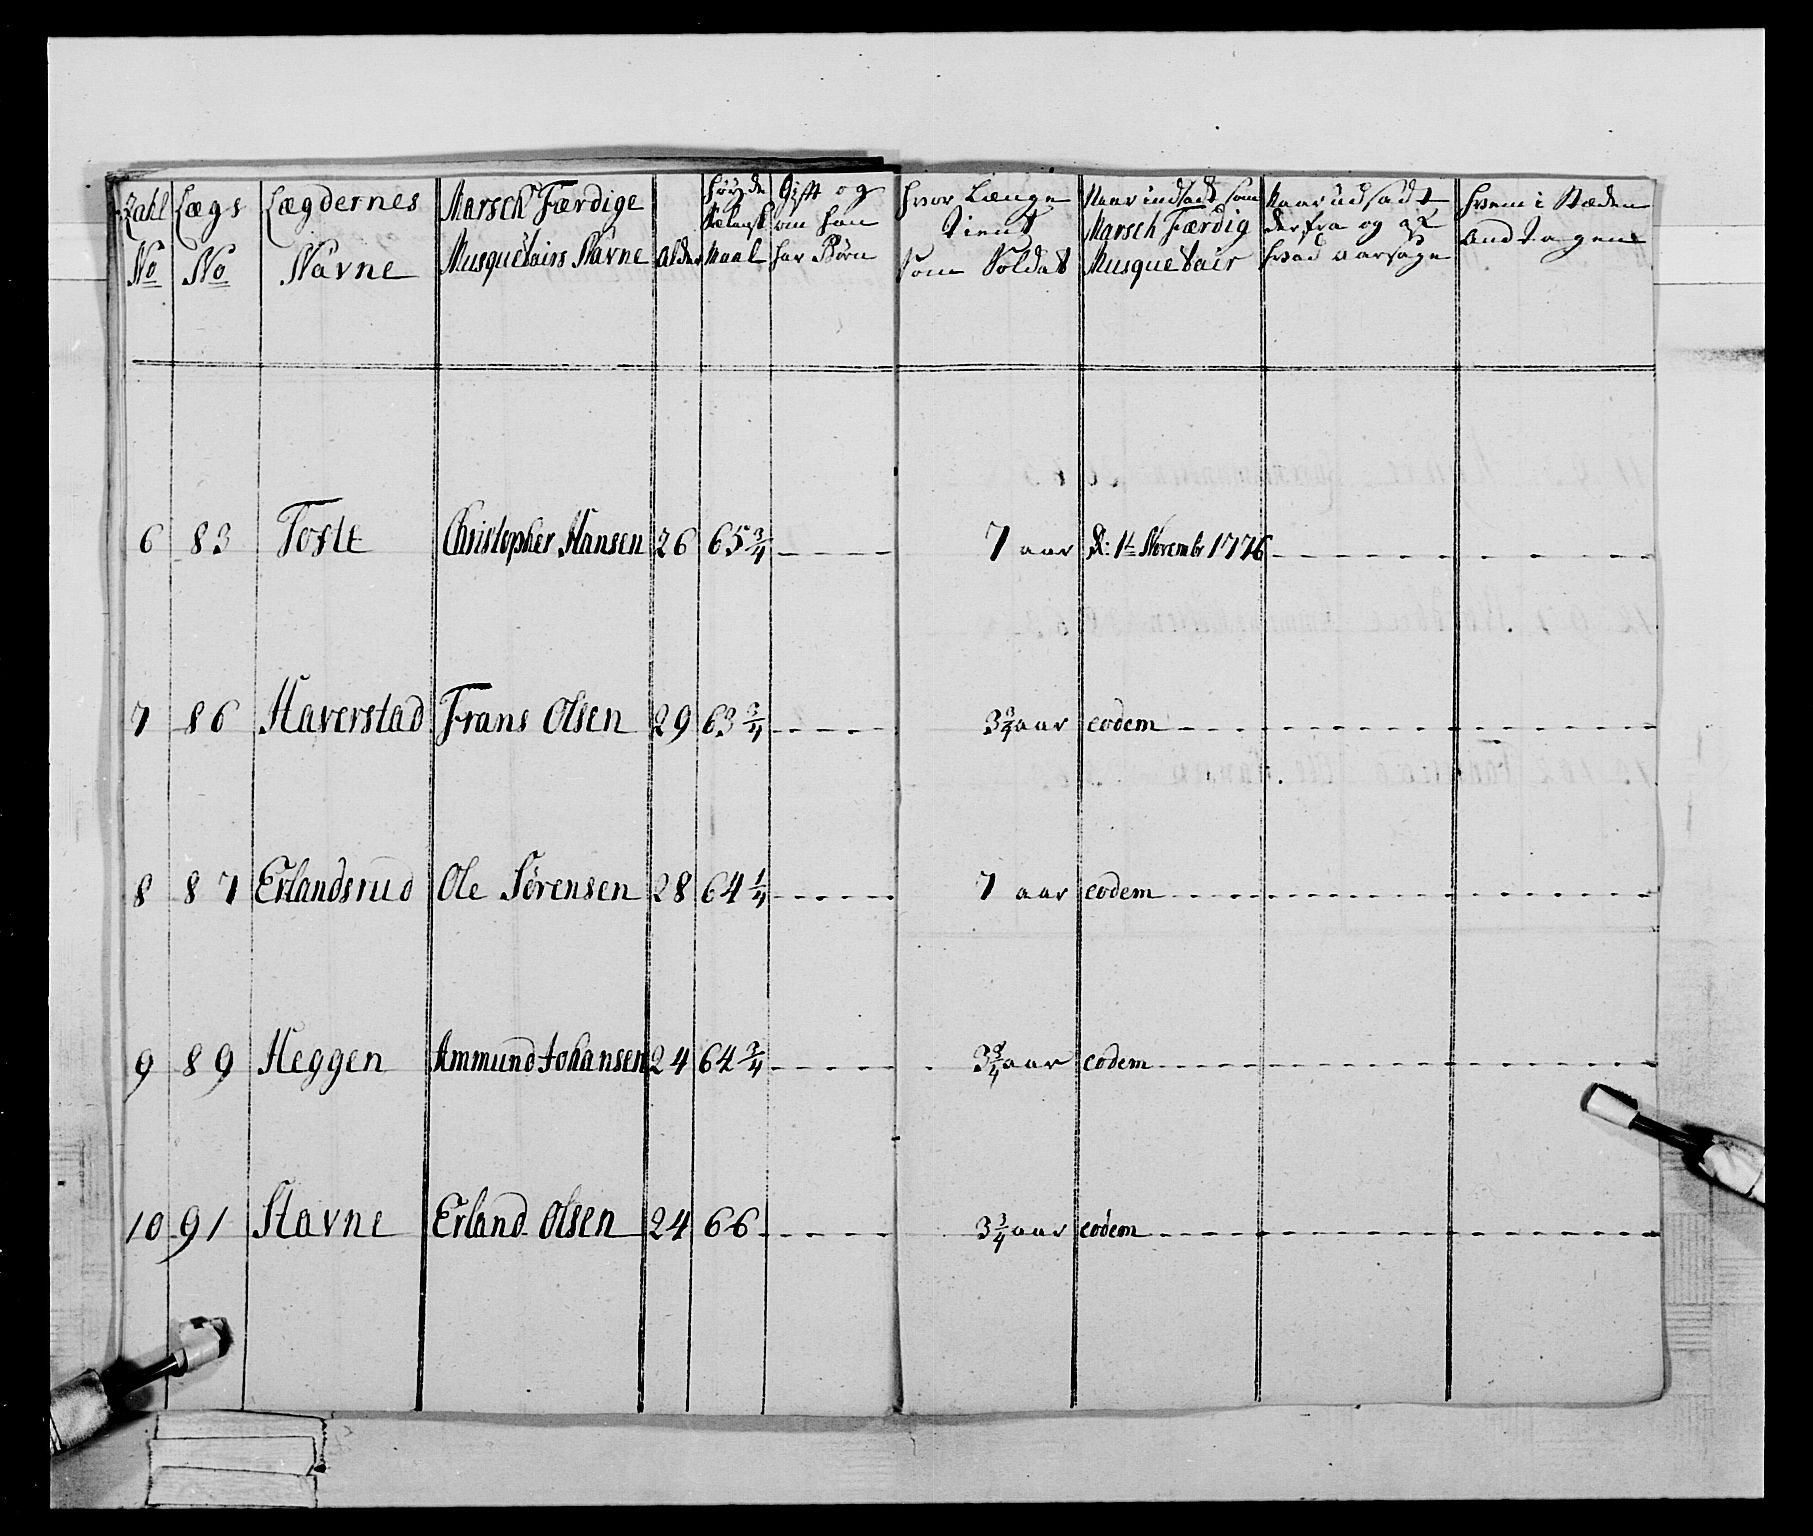 Zahl No
Lægs No
Lægdernes Navne
Marsch Færdige Musquetairs Navne
Alder
Høyde Siælansk Maal
Gift og om han har Børn
Hvor Længe tient som Soldat
Naar indsadt som Marsch Færdig Musquetair
Naar udsadt derfra og af hvad aarsage
Hvem i Stæden Andtagen
6 83 Toste Christopher Hansen 26 65 3/4 7 aar d: 1t Novembr 1776
7 86 Haverstad Frans Olsen 29 63 3/4 3 3/4 aar eodem
8 87 Erlandsrud Ole Sörensen 28 64 1/4 7 aar eodem
9 89 Heggen Ammund Johansen 24 64 3/4 3 3/4 aar eodem
10 91 Stavne Erland Olsen 24 66 3 3/4 aar eodem